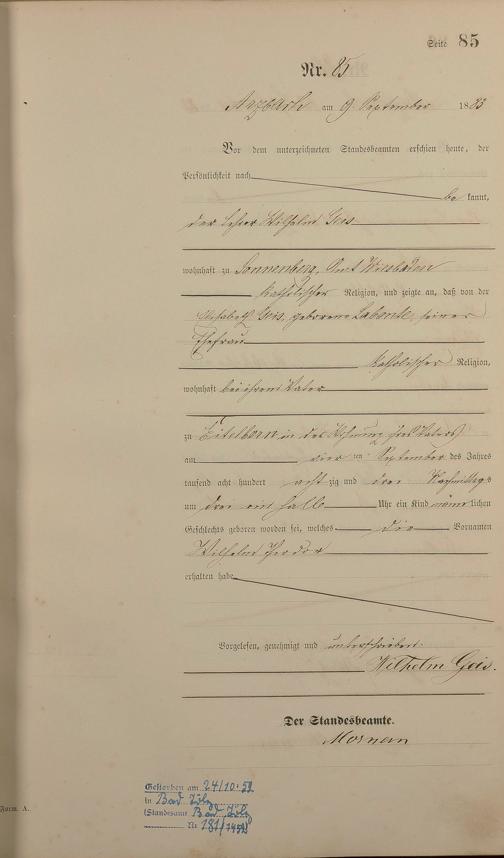 Seite 85
Nr. 85
Arzbach am 9. September 1883
Vor dem unterzeichneten Standesbeamten erschien heute, der
Persönlichkeit nach
be kannt,
der Lehrer Wilhelm Geis
wohnhaft zu Sonnenberg, Amt Wiesbaden
katholischer Religion, und zeigte an, daß von der
Elisabeth Geis, geborene Labonte, seiner
Ehefrau
katholischer Religion,
wohnhaft bei ihrem Vater
zu Eitelborn in der Wohnung ihres Vaters
am vier ten September des Jahres
tausend acht hundert acht zig und drei Nachmittags
um drei ein halb Uhr ein Kind männ lichen
Geschlechts geboren worden sei, welches die Vornamen
Wilhelm Theodor
erhalten habe
Vorgelesen, genehmigt und unterschrieben.
Wilhelm Geis.
Der Standesbeamte.
Gestorben am 24/10.
in Bad Tölz
(Standesamt Bad Tölz
Nr 181/
Form. A.